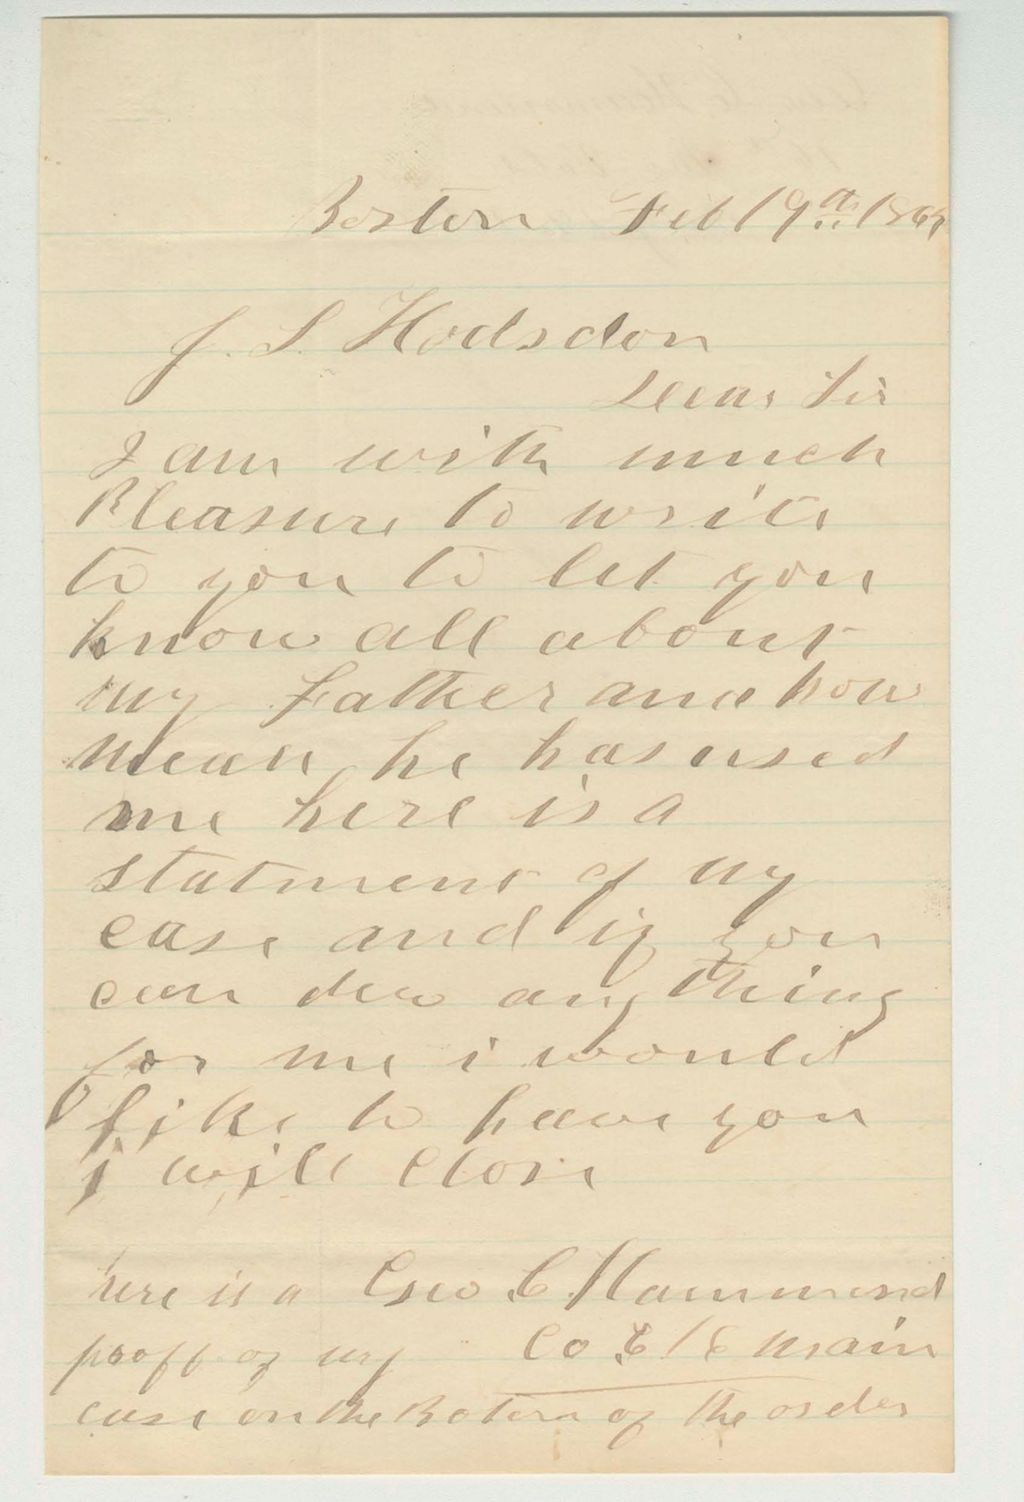 Boston Feb 19th 186
J. L. Hodsdon
Dear Sir
I am with much
Pleasure to write
to you to let you
know all about
my Father and how
mean he has used
me here is a
statment of my
case and if you
can dew any thing
for me i would
like to have you
i will close
here is a Geo C. Hammond
prooff of my Co E 16 Main
case on the Botom of the order